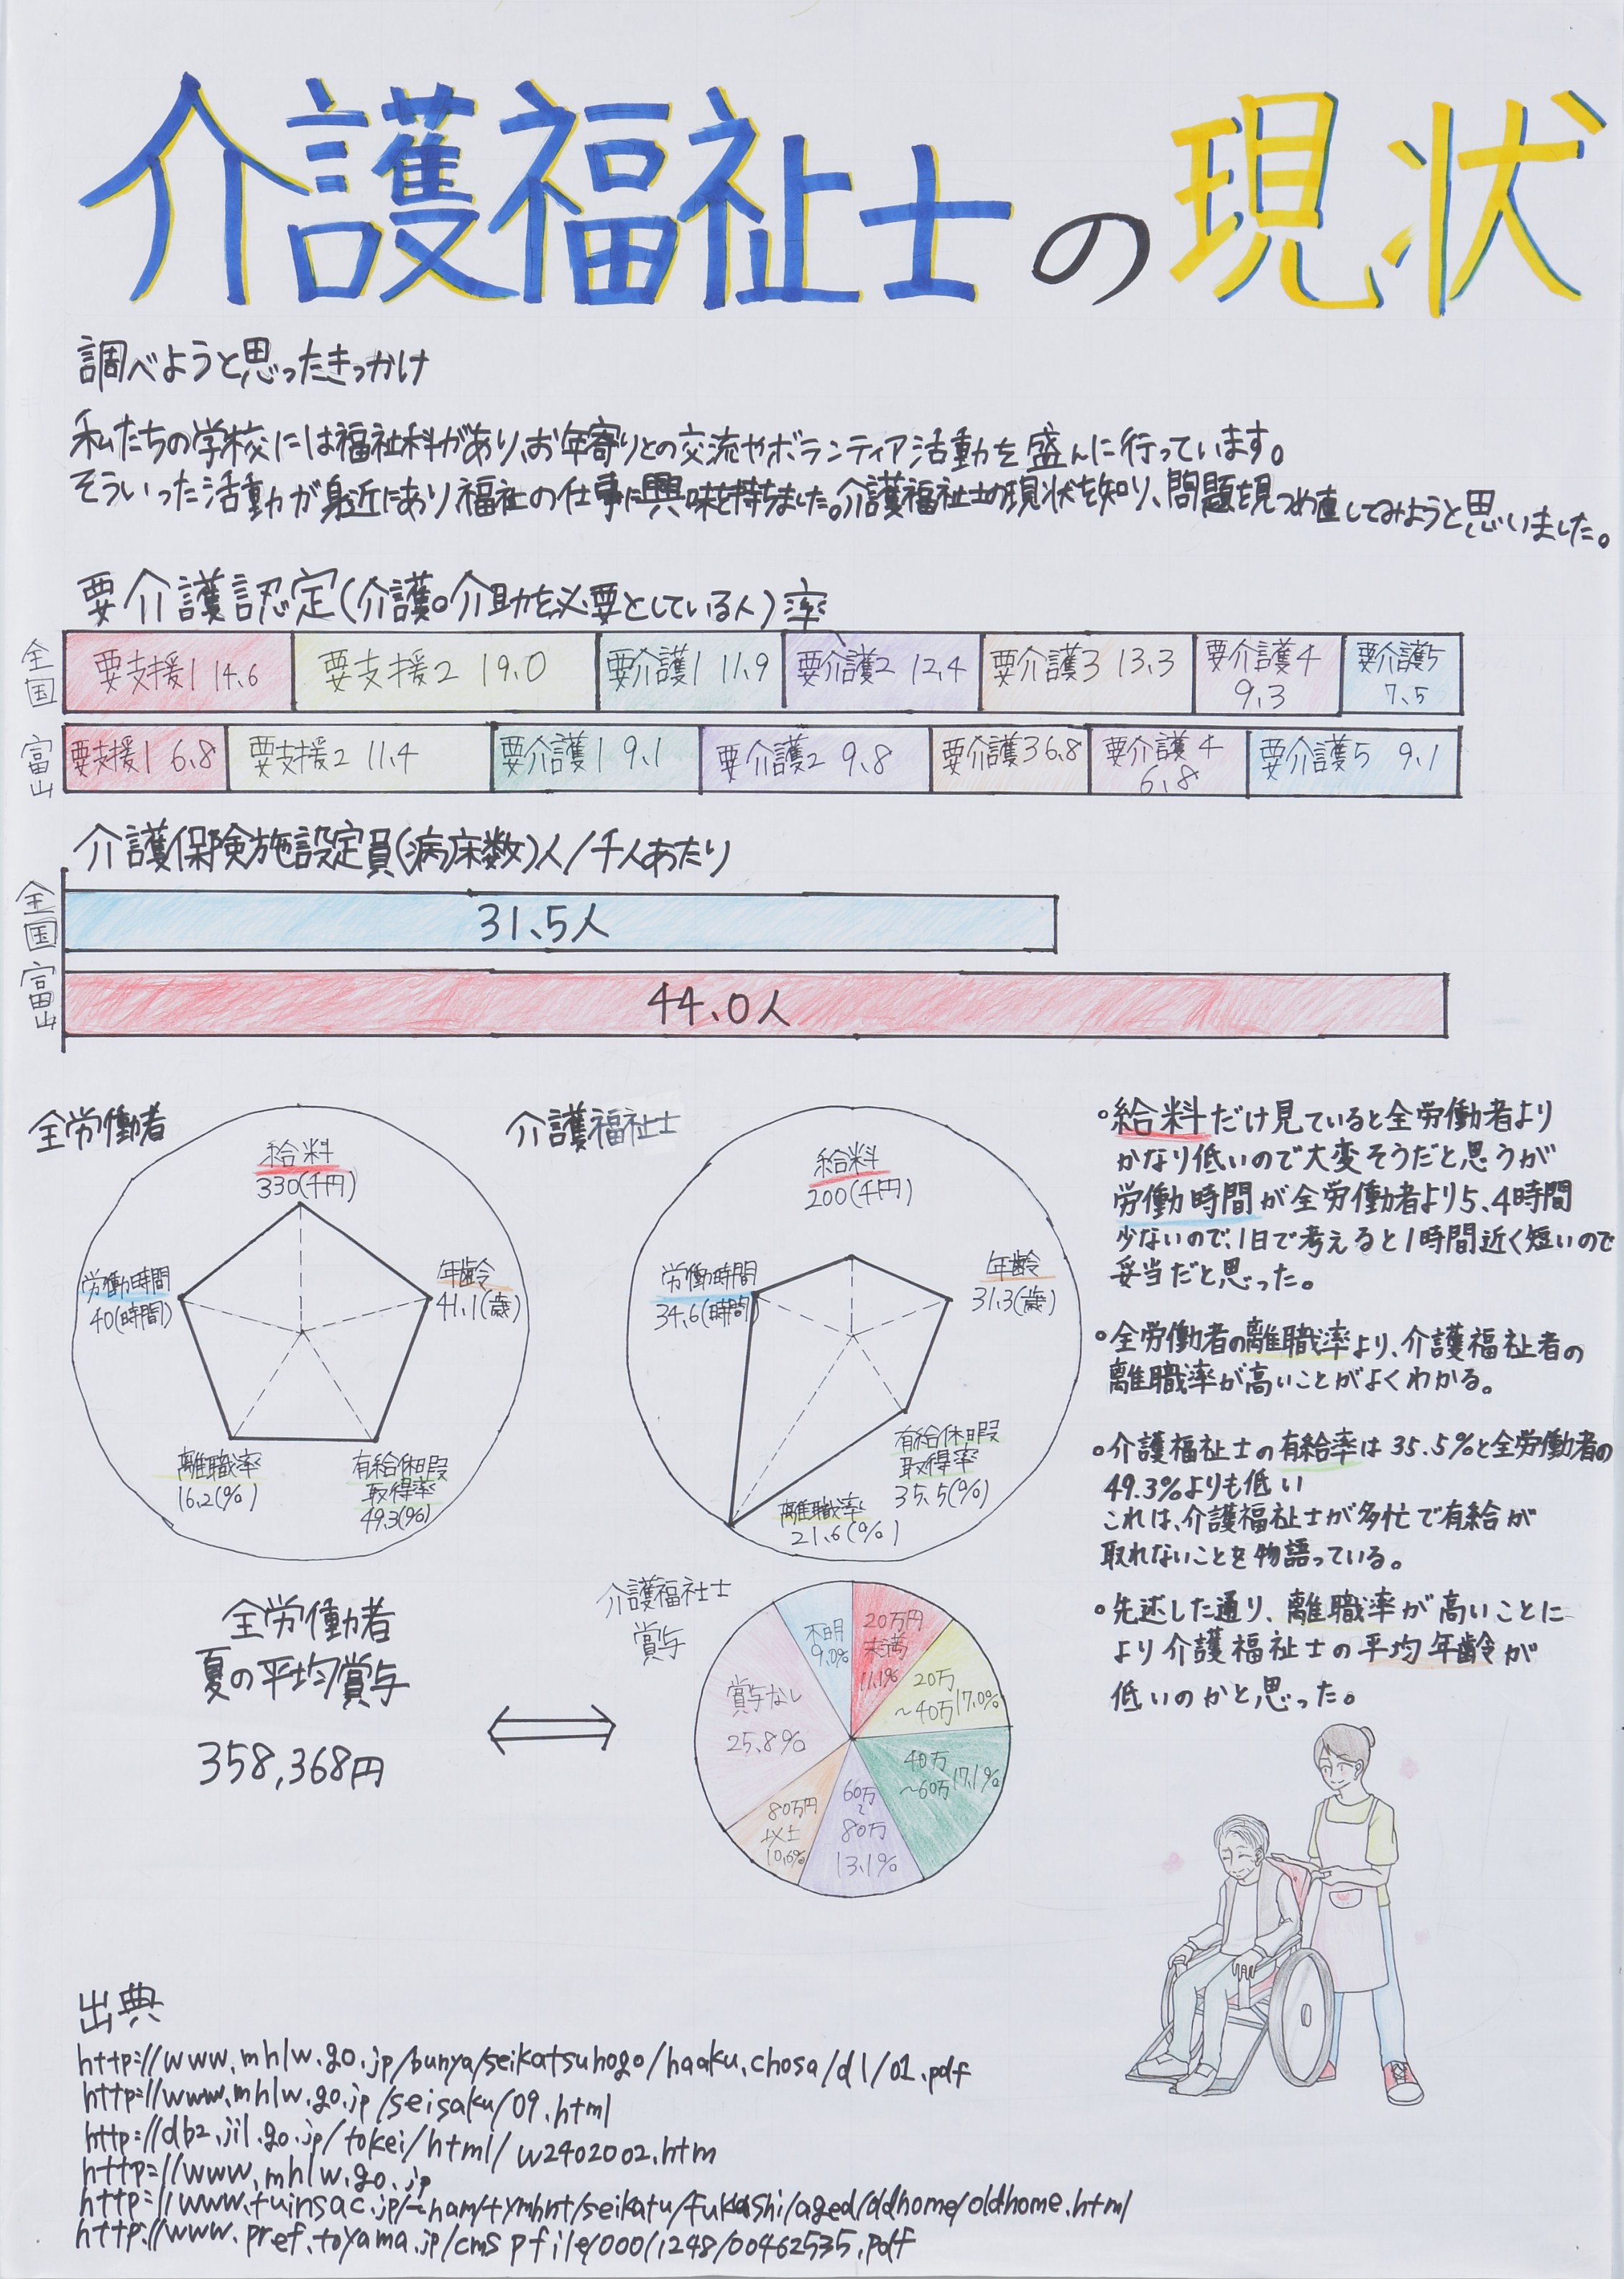 介護福祉士の現状
調べようと思ったきっかけ
私たちの学校には福祉科があり、お年寄りとの交流やボランティア活動を盛んに行っています。
そういった活動が身近にあり、福祉の仕事に興味を持ちました。介護福祉士の現状を知り、問題を見つめ直してみようと思いました。
要介護認定(介護。介助を必要としている人)率
全国
要支援1 14.6
要支援2 19.0
要介護1 11.9
要介護2 12.4
要介護3 13.3
要介護4
9.3
要介護5
7.5
富山
要支援1 6.8
要支援2 11.4
要介護1 9.1
要介護2 9.8
要介護3 6.8
要介護4
6.8
要介護5 9.1
介護保険施設定員(病床数)人/千人あたり
全国
31.5人
富山
44.0人
全労働者
給料
330(千円)
年齢
41.1(歳)
労働時間
40(時間)
離職率
16.2(%)
有給休暇
取得率
49.3(%)
介護福祉士
給料
200(千円)
年齢
31.3(歳)
労働時間
34.6(時間)
有給休暇
取得率
35.5(%)
離職率
21.6(%)
。給料だけ見ていると全労働者より
かなり低いので大変そうだと思うが
労働時間が全労働者より5.4時間
少ないので、1日で考えると1時間近く短いので
妥当だと思った。
。全労働者の離職率より、介護福祉者の
離職率が高いことがよくわかる。
。介護福祉士の有給率は35.5%と全労働者の
49.3%よりも低い
これは、介護福祉士が多忙で有給が
取れないことを物語っている。
。先述した通り、離職率が高いことに
より介護福祉士の平均年齢が
低いのかと思った。
全労働者
夏の平均賞与
358,368円
介護福祉士
賞与
不明
9.0%
20万円
未満
11.1%
20万
~40万 17.0%
40万
~60万 17.1%
60万
~
80万
13.1%
80万円
以上
10.6%
賞与なし
25.8%
出典
http://www.mhlw.go.jp/bunya/seikatsuhogo/haaku.chosa/dl/01.pdf
http://www.mhlw.go.jp/seisaku/09.html
http://db2.jil.go.jp/tokei/html/w2402002.htm
http://www.mhlw.go.jp
http://www.tuinsac.jp/~ham/tymhnt/seikatu/fukushi/aged/ddhome/oldhome.html
http://www.pref.toyama.jp/cms pfile/000/1248/00462535.pdf